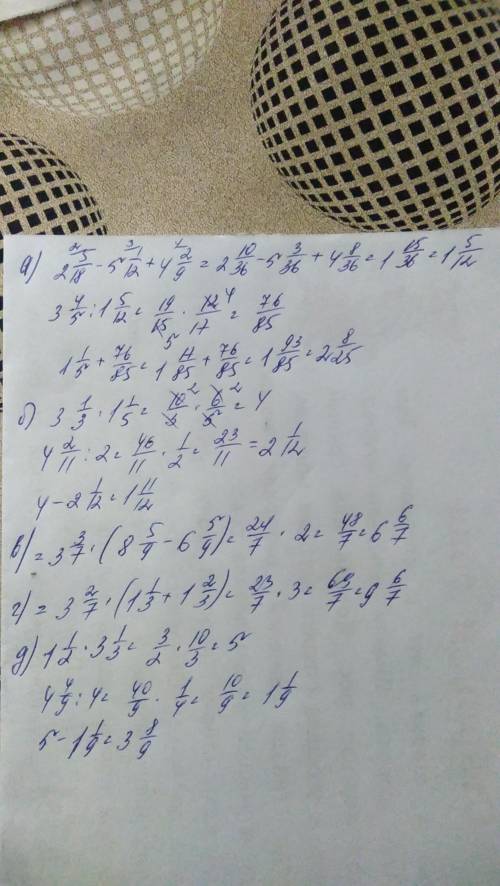 а) 2 5/18 - 5 1/12 + 4 2/9 = 2 10/36 - 5 3/36 + 4 8/36 = 1 15/36 = 1 5/12
3 4/5 : 1 5/12 = 19/15 · 12/17 = 76/85
1 1/5 + 76/85 = 1 17/85 + 76/85 = 1 93/85 = 2 8/25
б) 3 1/3 · 1 1/5 = 10/3 · 6/5 = 4
4 2/11 : 2 = 46/11 · 1/2 = 23/11 = 2 1/12
4 - 2 1/12 = 1 11/12
в) = 3 3/7 · (8 5/9 - 6 5/9) = 24/7 · 2 = 48/7 = 6 6/7
г) = 3 2/7 · (1 1/3 + 1 2/3) = 23/7 · 3 = 69/7 = 9 6/7
д) 1 1/2 · 3 1/3 = 3/2 · 10/3 = 5
4 4/9 : 4 = 40/9 · 1/4 = 10/9 = 1 1/9
5 - 1 1/9 = 3 8/9